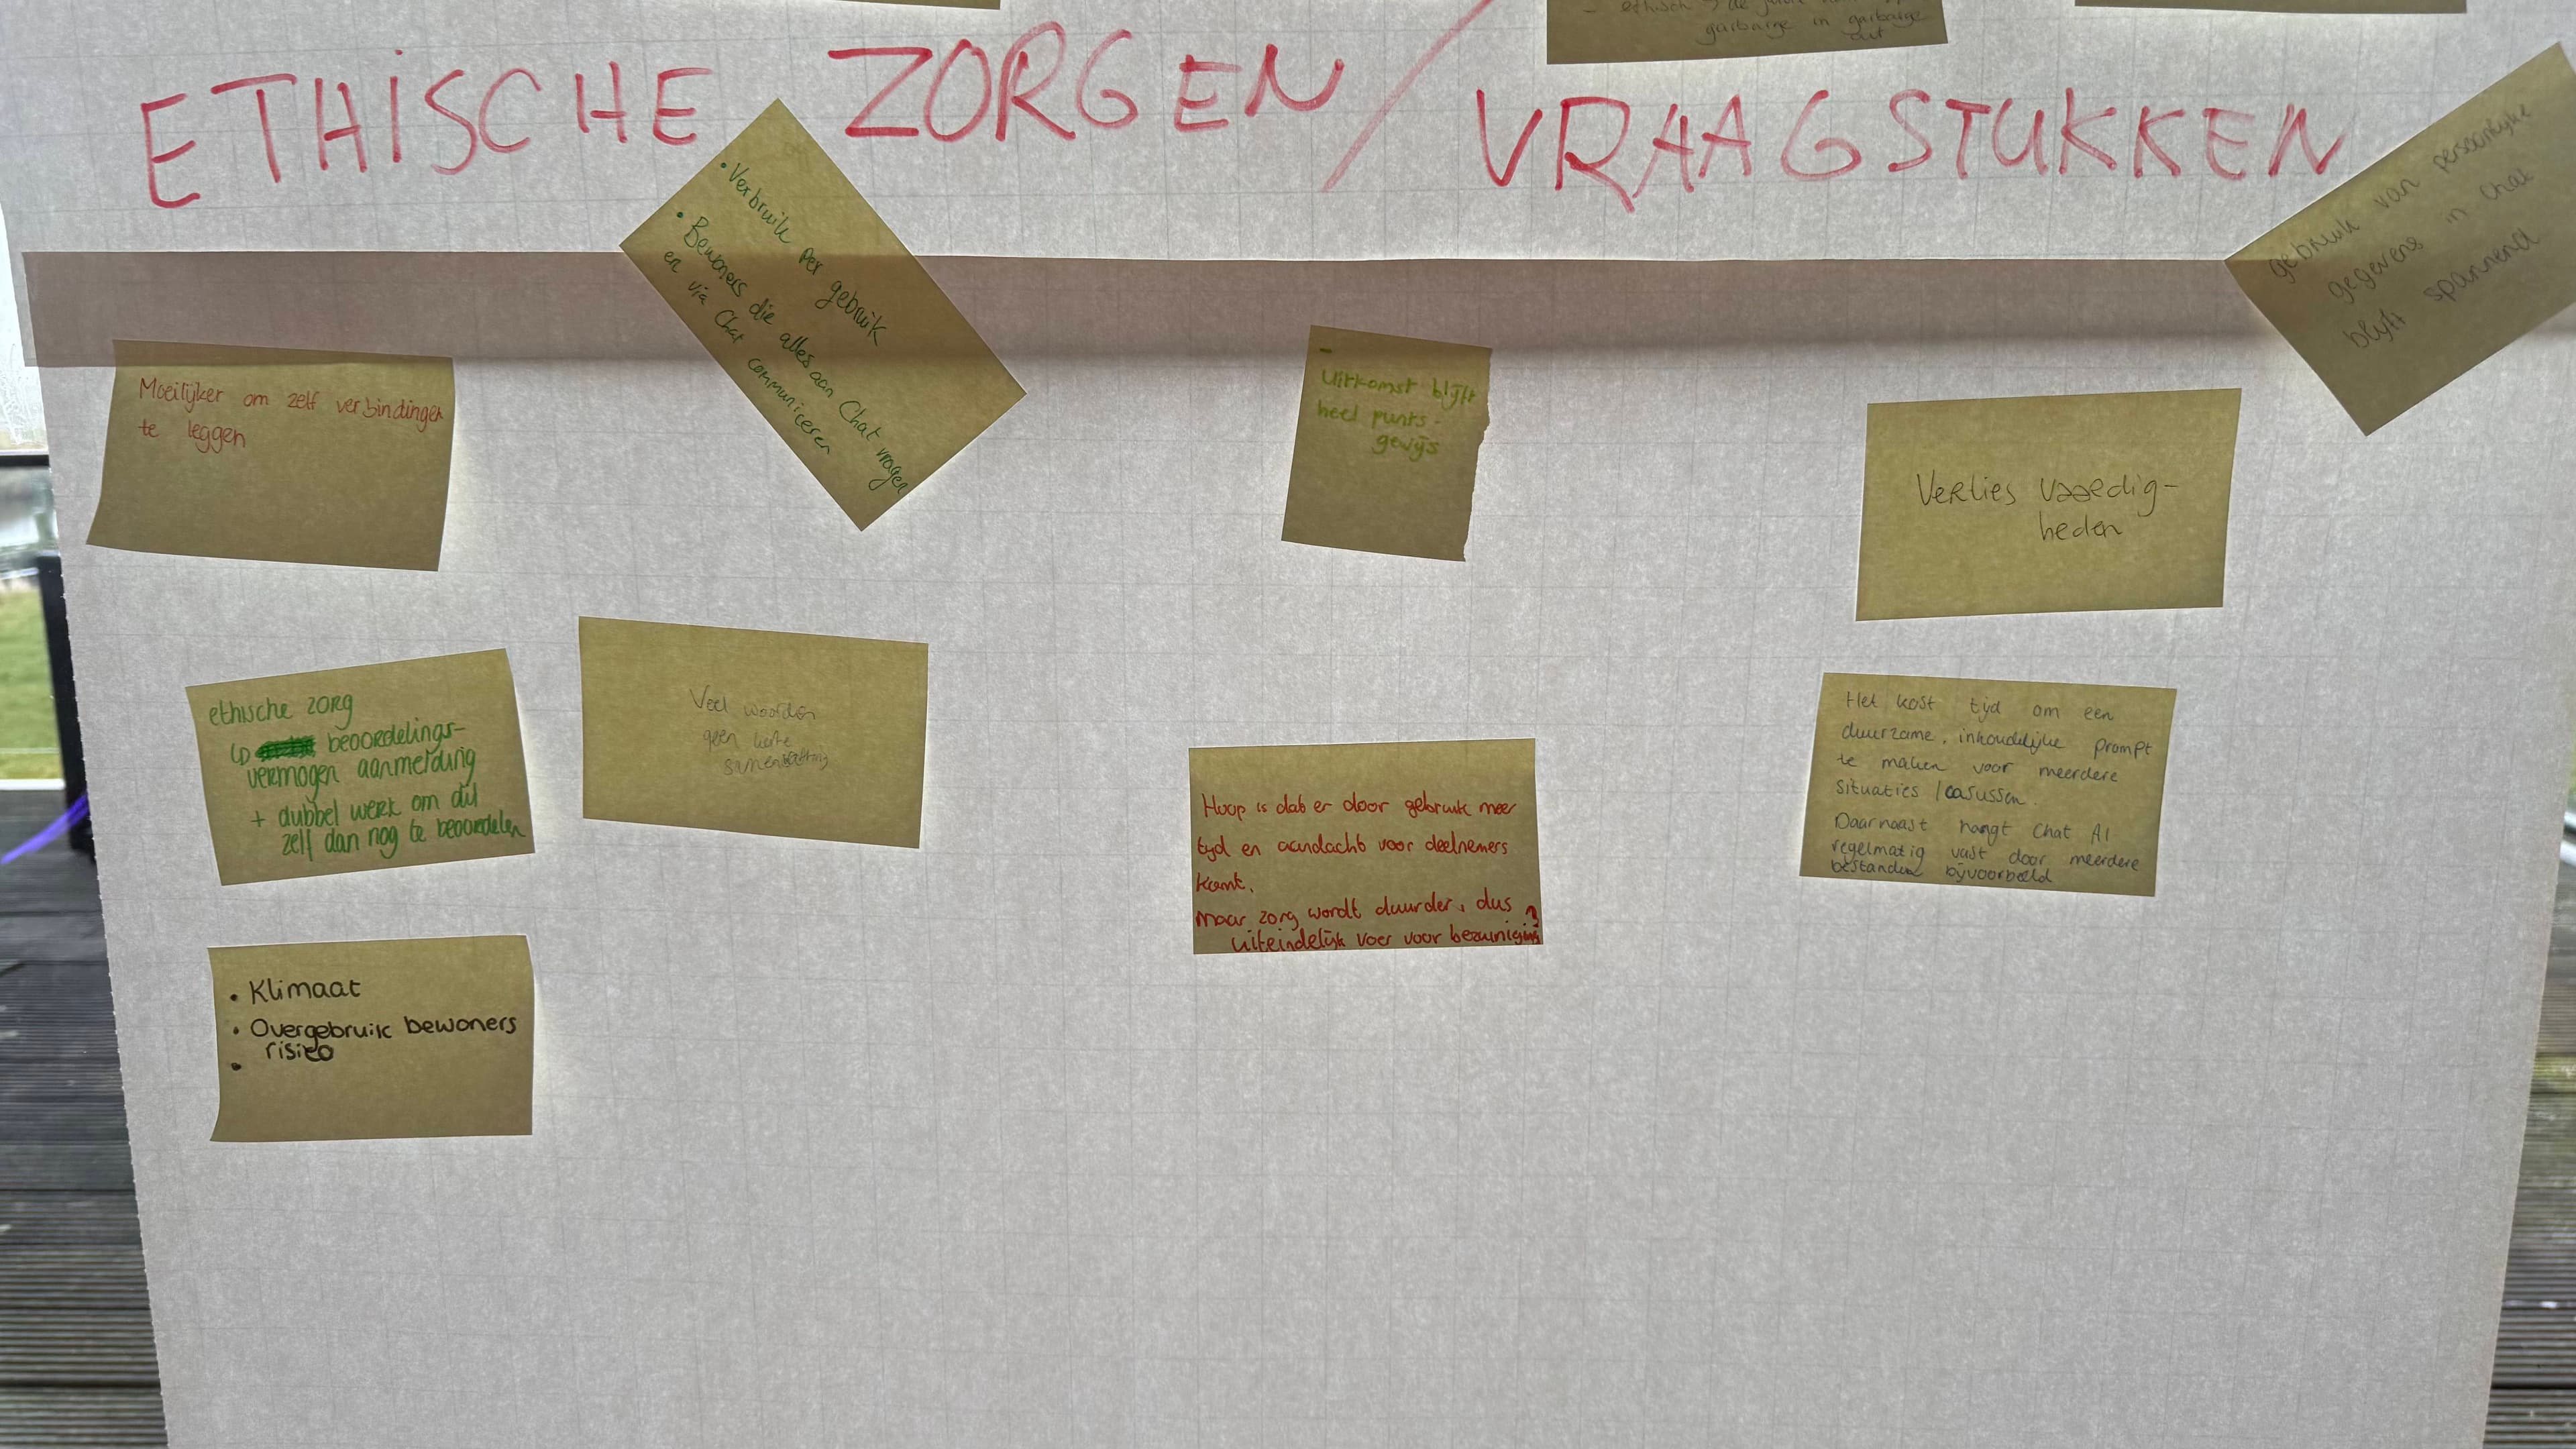 garbarge in garbarge
out
ETHISCHE ZORGEN / VRAAGSTUKKEN
gebruik van persoonlijke
gegevens in Chat
blijft spannend
• Verbruik per gebruik
• Bewoners die alles aan Chat vragen
en via Chat communiceren
Moeilijker om zelf verbindingen
te leggen
-
Uitkomst blijft
heel punts-
gewijs
Verlies vaardig-
heden
ethische zorg
beoordelings-
vermogen aanmelding
+ dubbel werk om dit
zelf dan nog te beoordelen
Veel woorden
geen korte
samenvatting
Hoop is dat er door gebruik meer
tijd en aandacht voor deelnemers
komt.
Maar zorg wordt duurder, dus
uiteindelijk voer voor bezuiniging?
Het kost tijd om een
duurzame, inhoudelijke prompt
te maken voor meerdere
situaties / casussen.
Daarnaast hangt Chat AI
regelmatig vast door meerdere
bestanden bijvoorbeeld
• Klimaat
• Overgebruik bewoners
risico
•